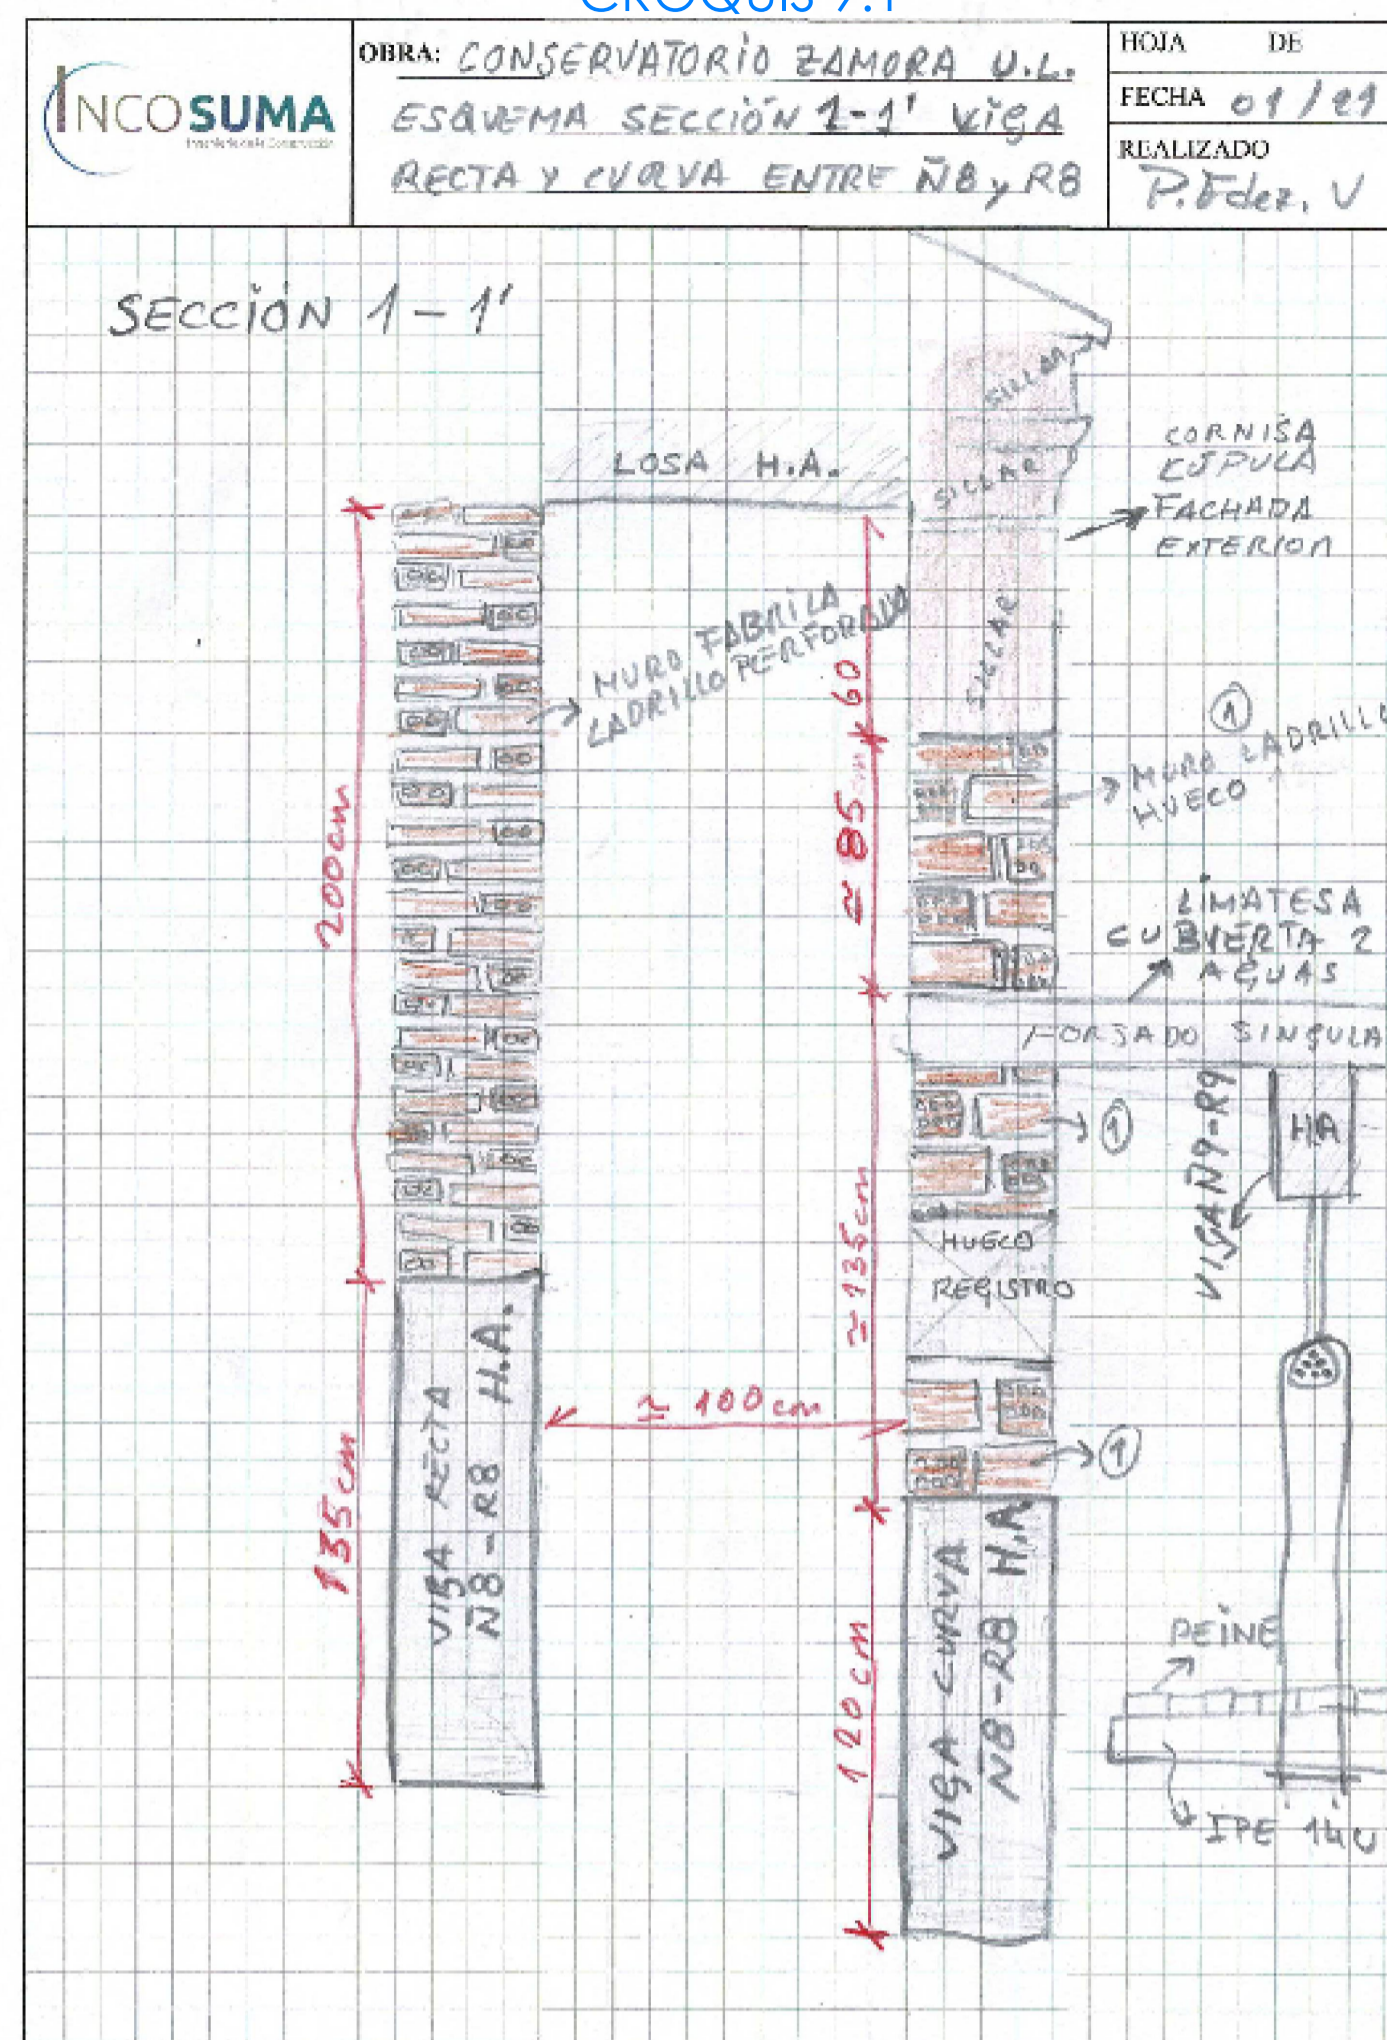 CROQUIS 9.1
INCOSUMA
OBRA: CONSERVATORIO ZAMORA U.L.
ESQUEMA SECCIÓN 1-1' VIGA
RECTA Y CURVA ENTRE Ñ8 y R8
HOJA DE
FECHA 01/21
REALIZADO
P. Fdez. V
SECCIÓN 1-1'
SILLAR
LOSA H.A.
SILLAR
CORNISA
CÚPULA
FACHADA
EXTERIOR
MURO FABRICA
LADRILLO PERFORADO
SILLAR
60
1
MURO LADRILLO
HUECO
200cm
≃ 85 cm
LIMATESA
CUBIERTA 2
AGUAS
FORJADO SINGULA
VIGA Ñ9-R9
HA
1
≃ 135cm
HUECO
REGISTRO
≃ 100 cm
1
135cm
VIGA RECTA
Ñ8-R8 H.A.
120cm
VIGA CURVA
Ñ8-R8 H.A
PEINE
IPE 140